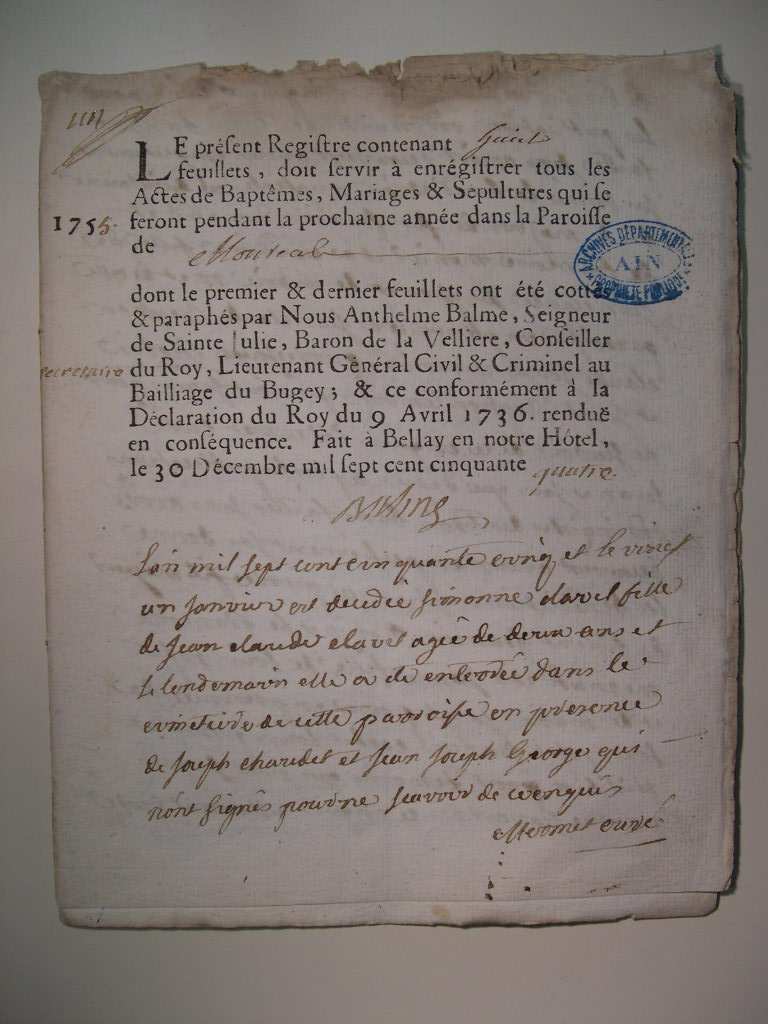 LE préſent Regiſtre contenant huit
feuillets, doit ſervir à enrégiſtrer tous les
Actes de Baptêmes, Mariages & Sepultures qui ſe
1755. feront pendant la prochaine année dans la Paroiſſe
de Montreal
ARCHIVES DÉPARTEMENTALES
AIN
PROPRIÉTÉ PUBLIQUE
dont le premier & dernier feuillets ont été cottés
& paraphés par Nous Anthelme Balme, Seigneur
de Sainte Julie, Baron de la Velliere, Conſeiller
secretaire du Roy, Lieutenant Général Civil & Criminel au
Bailliage du Bugey; & ce conformément à la
Déclaration du Roy du 9 Avril 1736. renduë
en conſéquence. Fait à Bellay en notre Hôtel,
le 30 Décembre mil ſept cent cinquante quatre.
L'an mil sept cent cinquante cinq et le vinct
un janvier est decedée simonne clavel fille
de jean claude clavel agée de deux ans et
le lendemain elle a eté enterrée dans le
cimetiere de cette paroisse en presence
de joseph et jean joseph George qui
n'ont signés pour ne scavoir de
curé